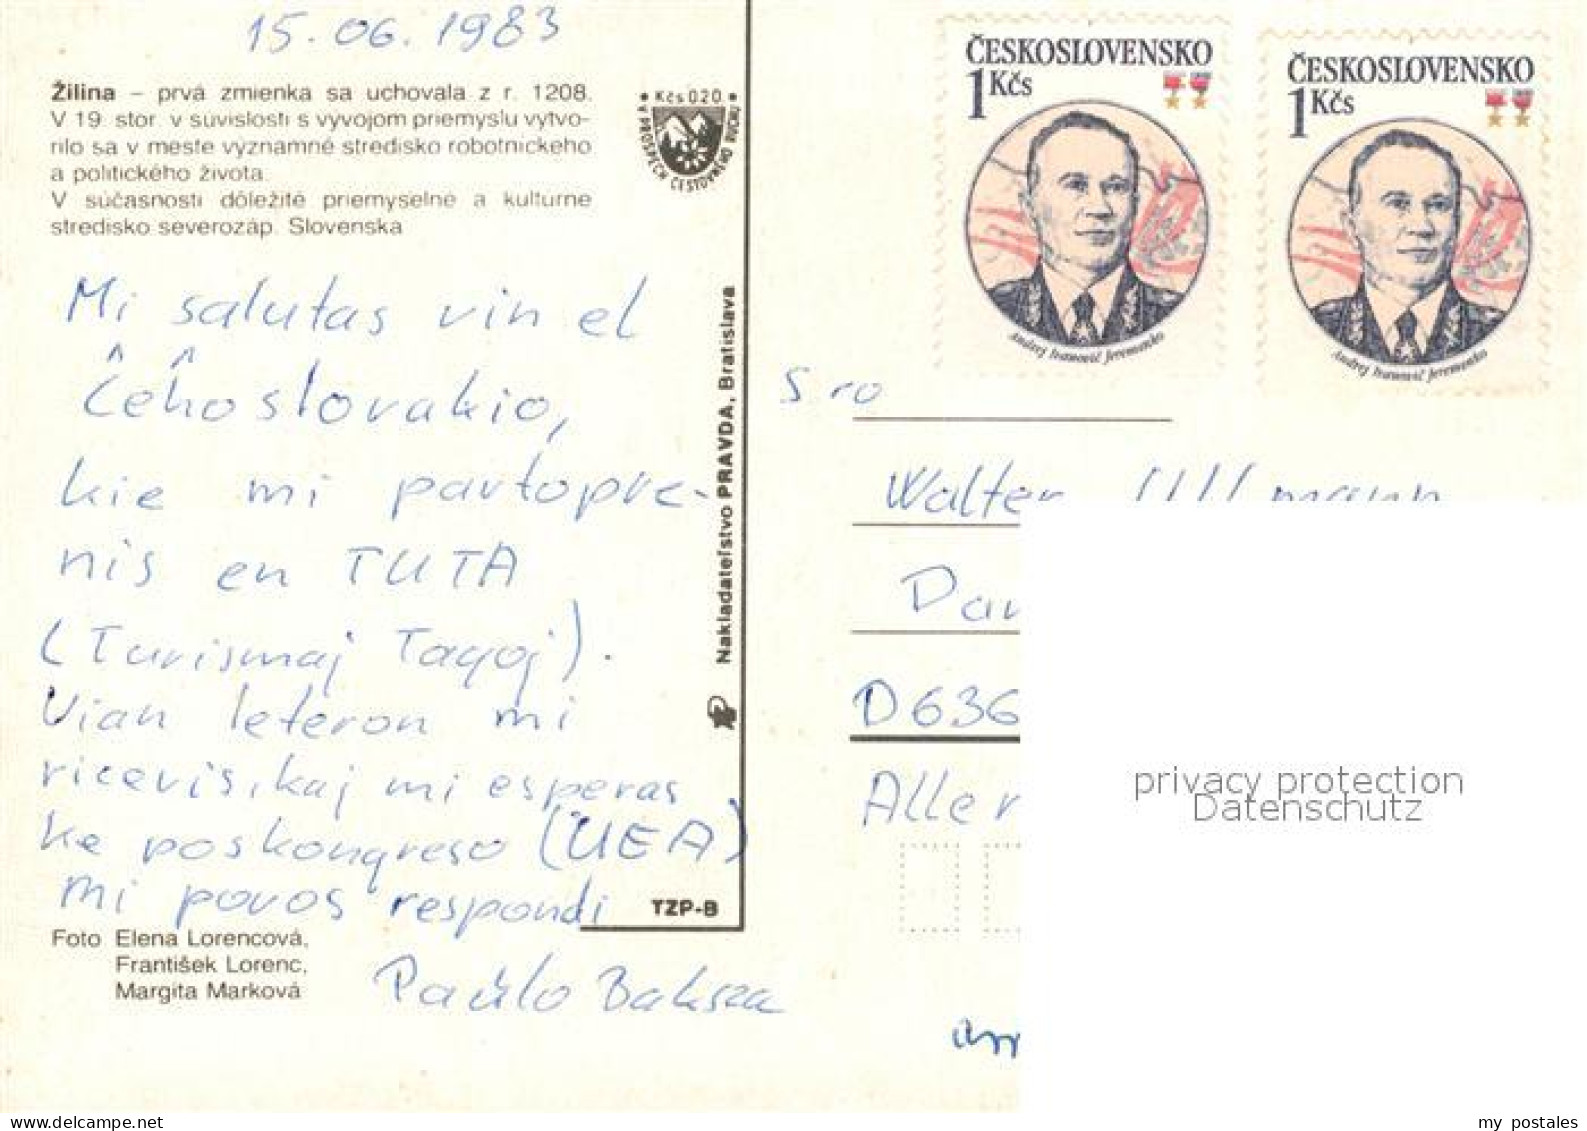 15.06.1983
Žilina – prvá zmienka sa uchovala z r. 1208.
V 19. stor. v súvislosti s vývojom priemyslu vytvo-
rilo sa v meste významné stredisko robotníckeho
a politického života.
V súčasnosti dôležité priemyselné a kultúrne
stredisko severozáp. Slovenska
• Kčs 0.20 •
V PROSPECH CESTOVNÉHO RUCHU
Mi salutas vin el
Ĉeĥoslovakio,
kie mi partopre-
nis en TUTA
(Turismaj Tagoj).
Vian leteron mi
ricevis, kaj mi esperas
ke poskongreso (UEA)
mi povos respondi
Paŭlo Baksza
Foto Elena Lorencová,
František Lorenc,
Margita Marková
TZP-B
Nakladateľstvo PRAVDA, Bratislava
ČESKOSLOVENSKO
1 Kčs
Andrej Ivanovič Jeremenko
ČESKOSLOVENSKO
1 Kčs
Andrej Ivanovič Jeremenko
S-ro
Walter Ullmann
D636
Aller
privacy protection
Datenschutz
delcampe.net
my_postales